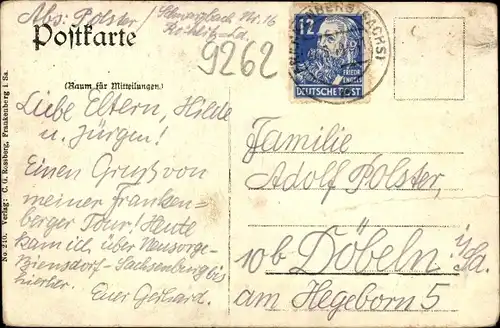 Abs: Polster / Schwarzbach Nr. 16
Postkarte
9262
(Raum für Mitteilungen)
Liebe Eltern, Hilde
u. Jürgen!
Einen Gruß von
meiner Franken-
berger Tour! Heute
kam ich über Neusorge-
Biensdorf-Sachsenburg bis
hierher.
Euer Gerhard.
No. 710. Verlag: C. G. Rossberg, Frankenberg i. Sa.
12
FRIEDR.
ENGELS
DEUTSCHE POST
Familie
Adolf Polster,
10b Döbeln i/Sa.
am Hegeborn 5